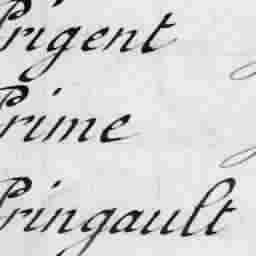 Prigent
Prime
Pringault